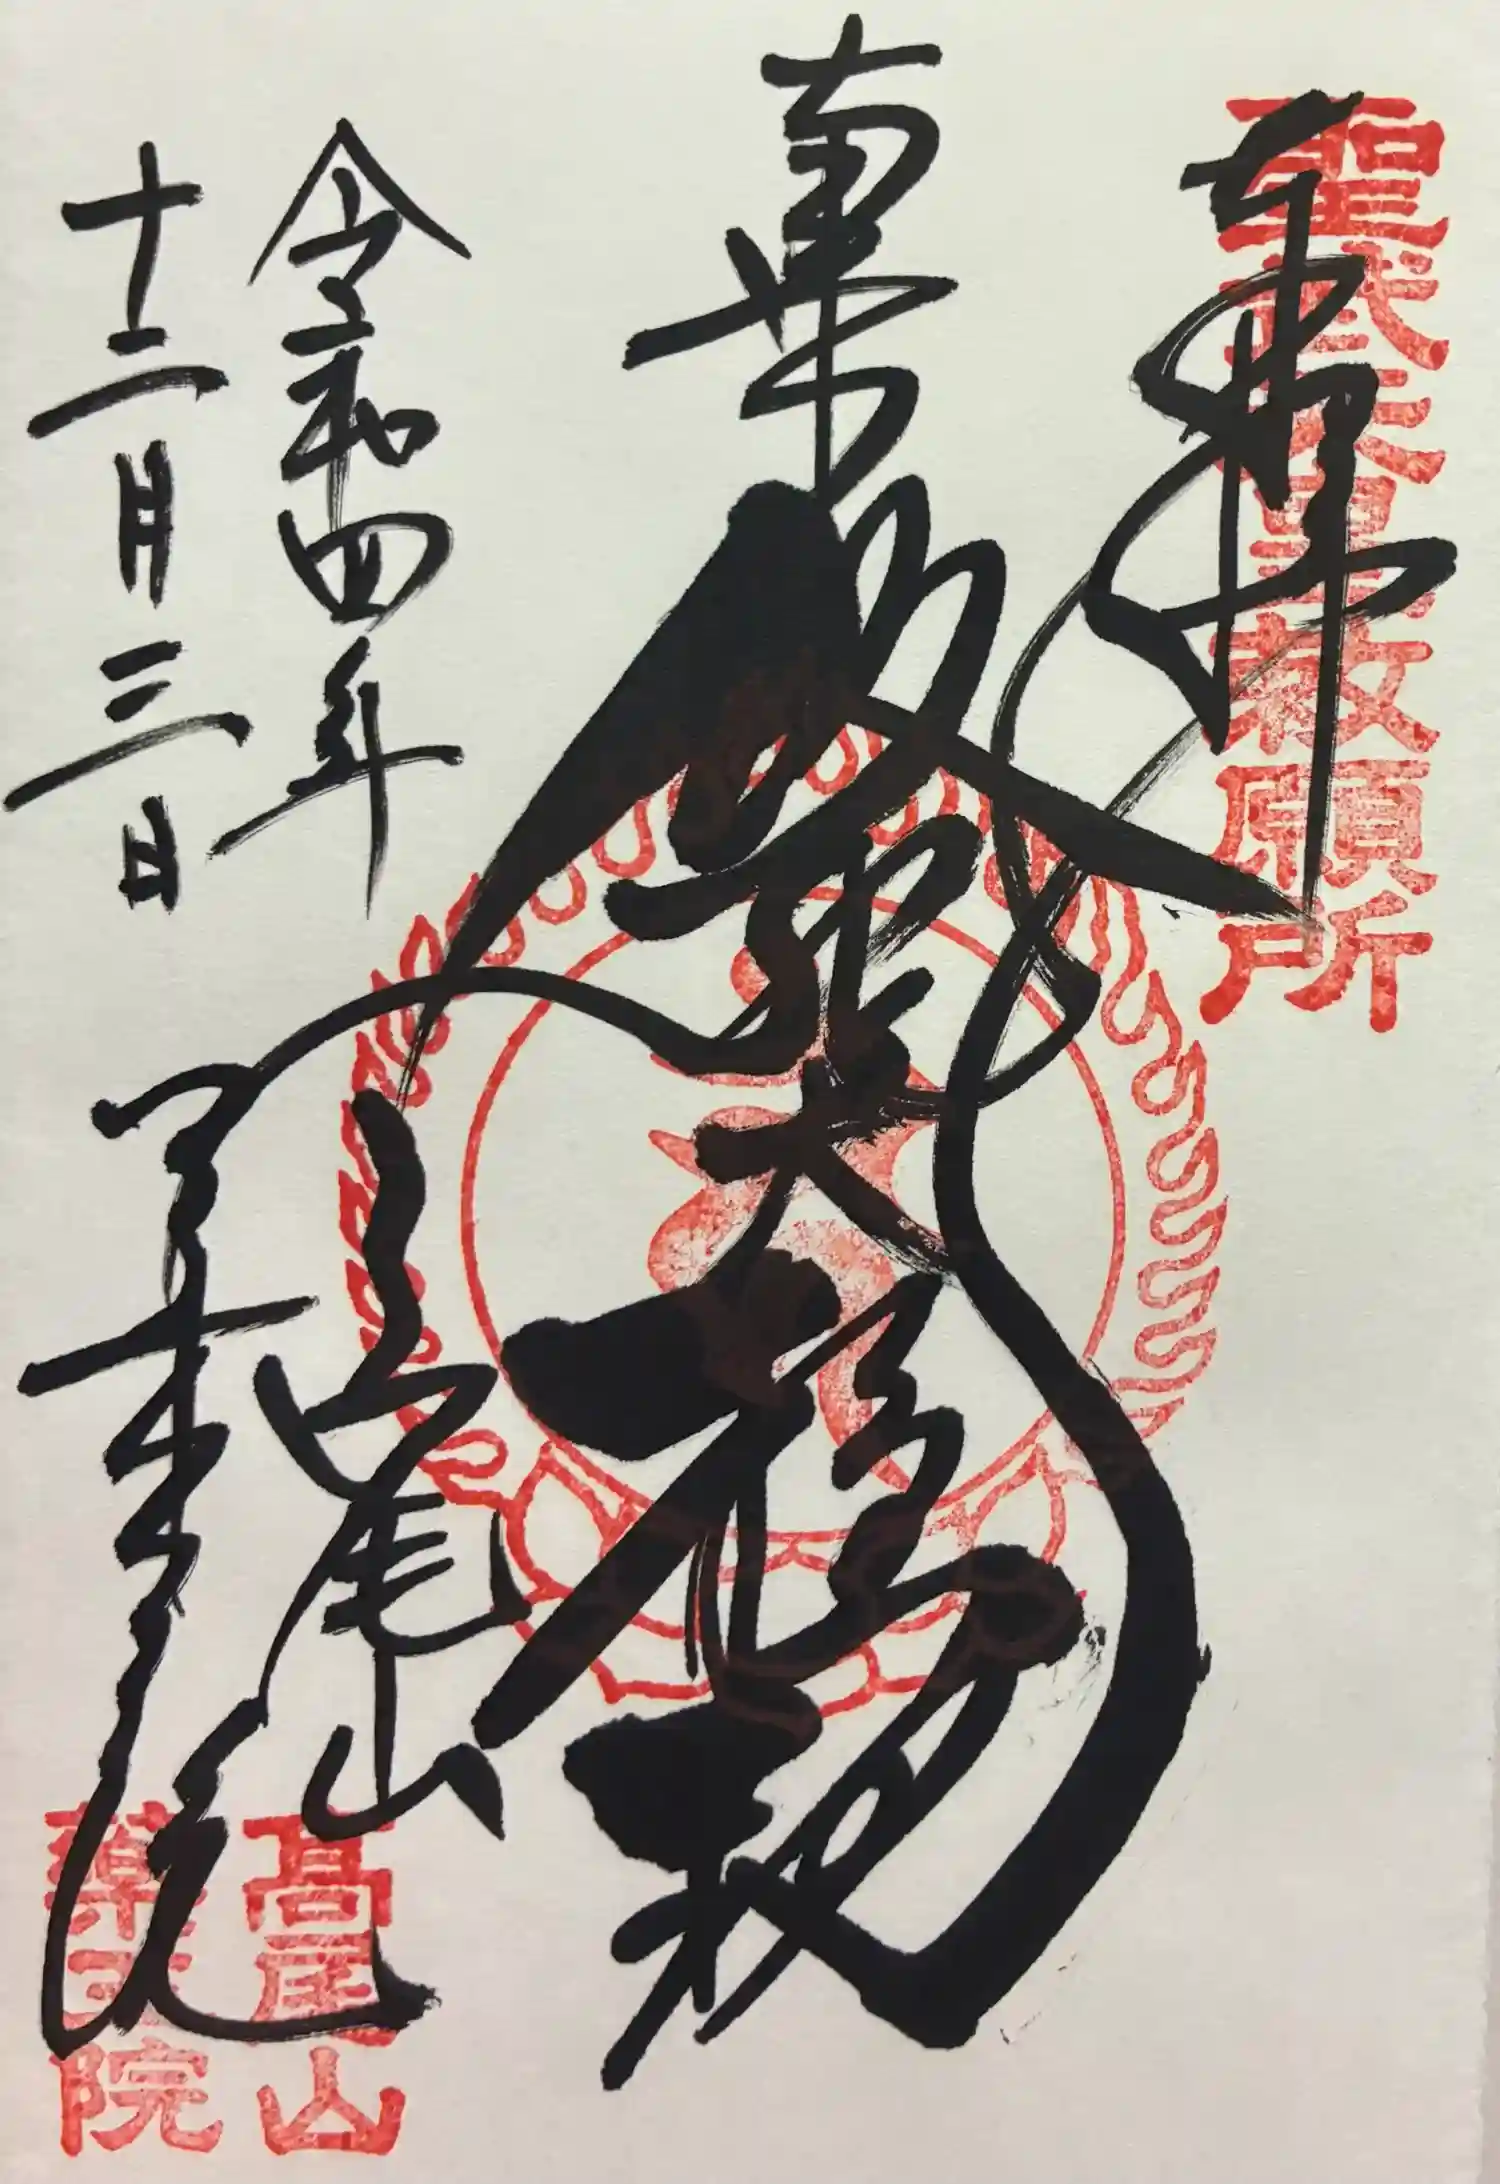 奉拝
聖武天皇敕願所
飯縄大権現
令和四年
十二月三日
高尾山
薬王院
高尾山
薬王院